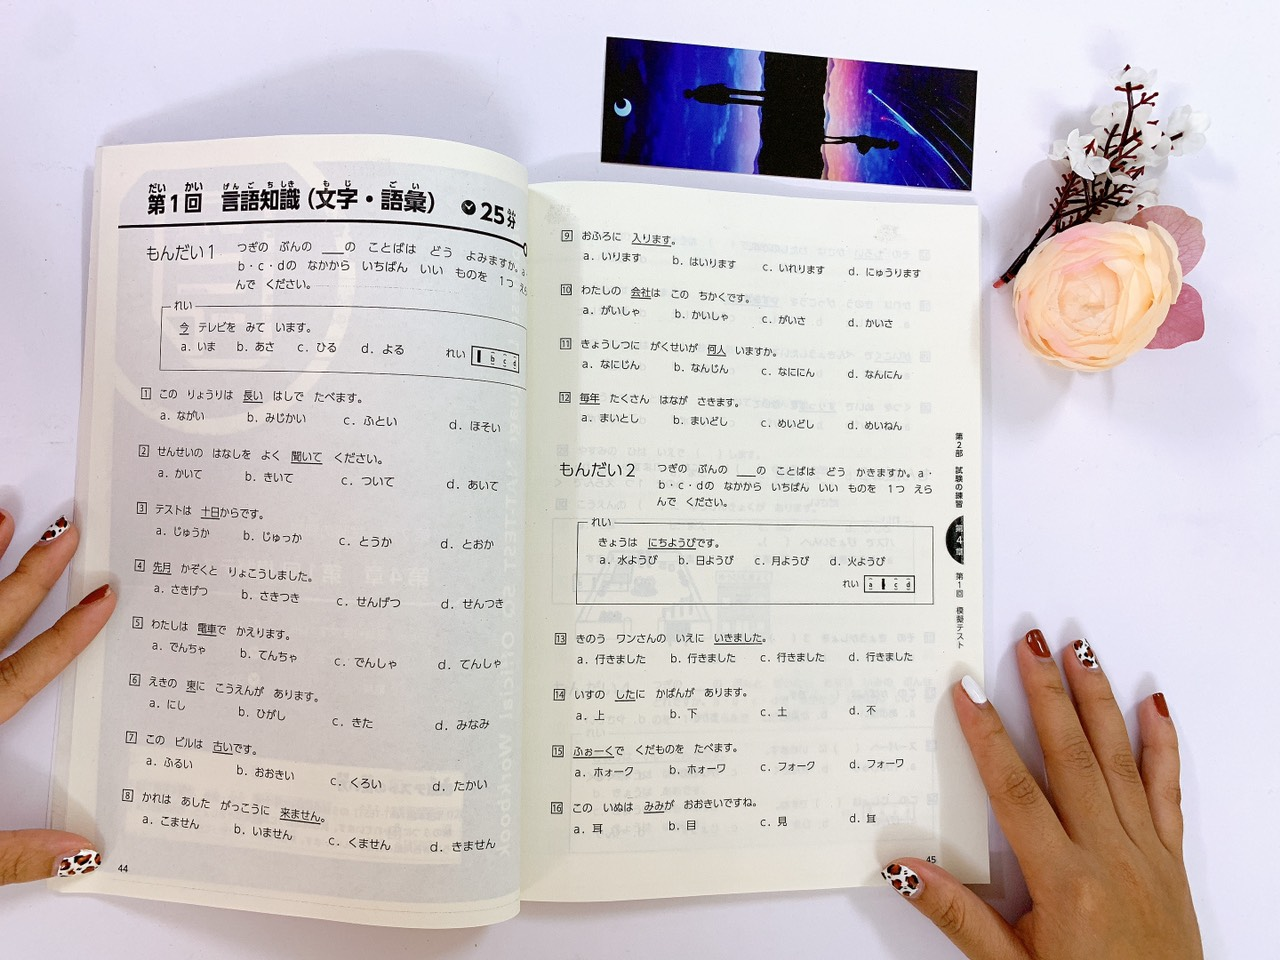 だい かい げんごちしき もじ ごい
第1回 言語知識(文字・語彙) 25分
もんだい1 つぎの ぶんの ___の ことばは どう よみますか。a・
b・c・dの なかから いちばん いい ものを 1つ えら
んで ください。
れい
今 テレビを みて います。
a. いま b. あさ c. ひる d. よる れい b c d
1 この りょうりは 長い はしで たべます。
a. ながい b. みじかい c. ふとい d. ほそい
2 せんせいの はなしを よく 聞いて ください。
a. かいて b. きいて c. ついて d. あいて
3 テストは 十日からです。
a. じゅうか b. じゅっか c. とうか d. とおか
4 先月 かぞくと りょこうしました。
a. さきげつ b. さきつき c. せんげつ d. せんつき
5 わたしは 電車で かえります。
a. でんちゃ b. てんちゃ c. でんしゃ d. てんしゃ
6 えきの 東に こうえんが あります。
a. にし b. ひがし c. きた d. みなみ
7 この ビルは 古いです。
a. ふるい b. おおきい c. くろい d. たかい
8 かれは あした がっこうに 来ません。
a. こません b. いません c. くません d. きません
44
9 おふろに 入ります。
a. いります b. はいります c. いれります d. にゅうります
10 わたしの 会社は この ちかくです。
a. がいしゃ b. かいしゃ c. がいさ d. かいさ
11 きょうしつに がくせいが 何人 いますか。
a. なにじん b. なんじん c. なににん d. なんにん
12 毎年 たくさん はなが さきます。
a. まいとし b. まいどし c. めいどし d. めいねん
もんだい2 つぎの ぶんの ___の ことばは どう かきますか。a・
b・c・dの なかから いちばん いい ものを 1つ えら
んで ください。
れい
きょうは にちようびです。
a. 水ようび b. 日ようび c. 月ようび d. 火ようび
れい a c d
13 きのう ワンさんの いえに いきました。
a. 行きました b. 行きました c. 行きました d. 行きました
14 いすの したに かばんが あります。
a. 上 b. 下 c. 土 d. 不
15 ふぉーくで くだものを たべます。
a. ホォーク b. ホォーワ c. フォーク d. フォーワ
16 この いぬは みみが おおきいですね。
a. 耳 b. 目 c. 見
45
第2部 試験の練習
第4章
第1回 模擬テスト